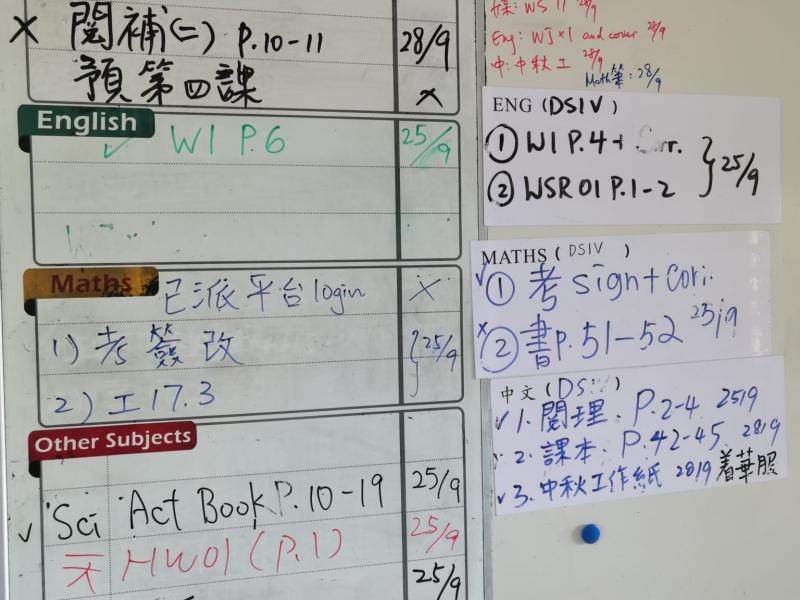 × 閱補(二) P.10-11 28/9
預第四課 ×
English
✓ W1 P.6 25/9
Maths 已派平台login ×
1) 考簽改 } 25/9
2) 工17.3
Other Subjects
✓ Sci Act Book P.10-19 25/9
HW01 (P.1) 25/9
25/9
WS 11 28/9
Eng: WJ×1 and cover 28/9
中:中秋工 28/9
Math筆:28/9
ENG (DSIV)
① W1 P.4+ } 25/9
② WSR01 P.1-2
MATHS (DSIV)
✓ ① 考 sign + Corr.
× ② 書P.51-52 25/9
中文 (DS )
✓ 1. 閱理: P.2-4 25/9
✓ 2. 課本: P.42-45 28/9
✓ 3. 中秋工作紙 28/9 着華服